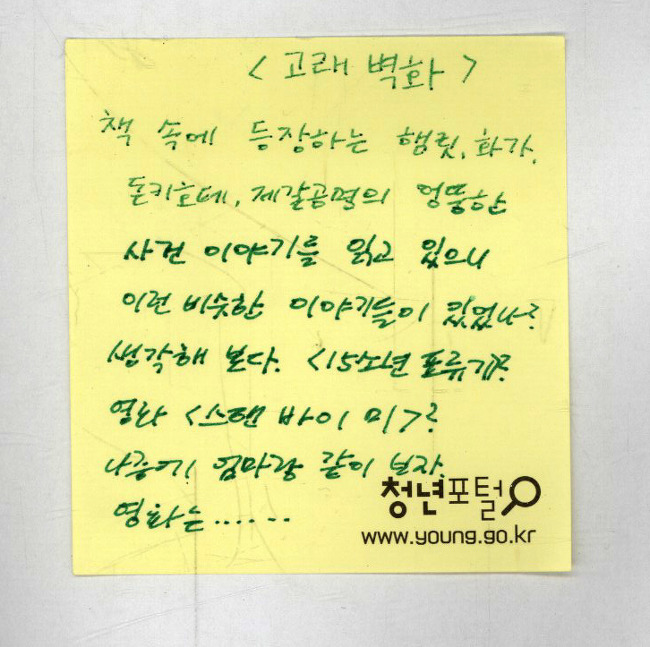 < 고래 벽화 >
책 속에 등장하는 햄릿, 화가,
돈키호테, 제갈공명의 엉뚱한
사건 이야기를 읽고 있으니
이런 비슷한 이야기들이 있었나?
생각해 본다. <15소년 표류기>?
영화 <스탠 바이 미>?
나중에 엄마랑 같이 보자.
영화는......
청년포털
www.young.go.kr